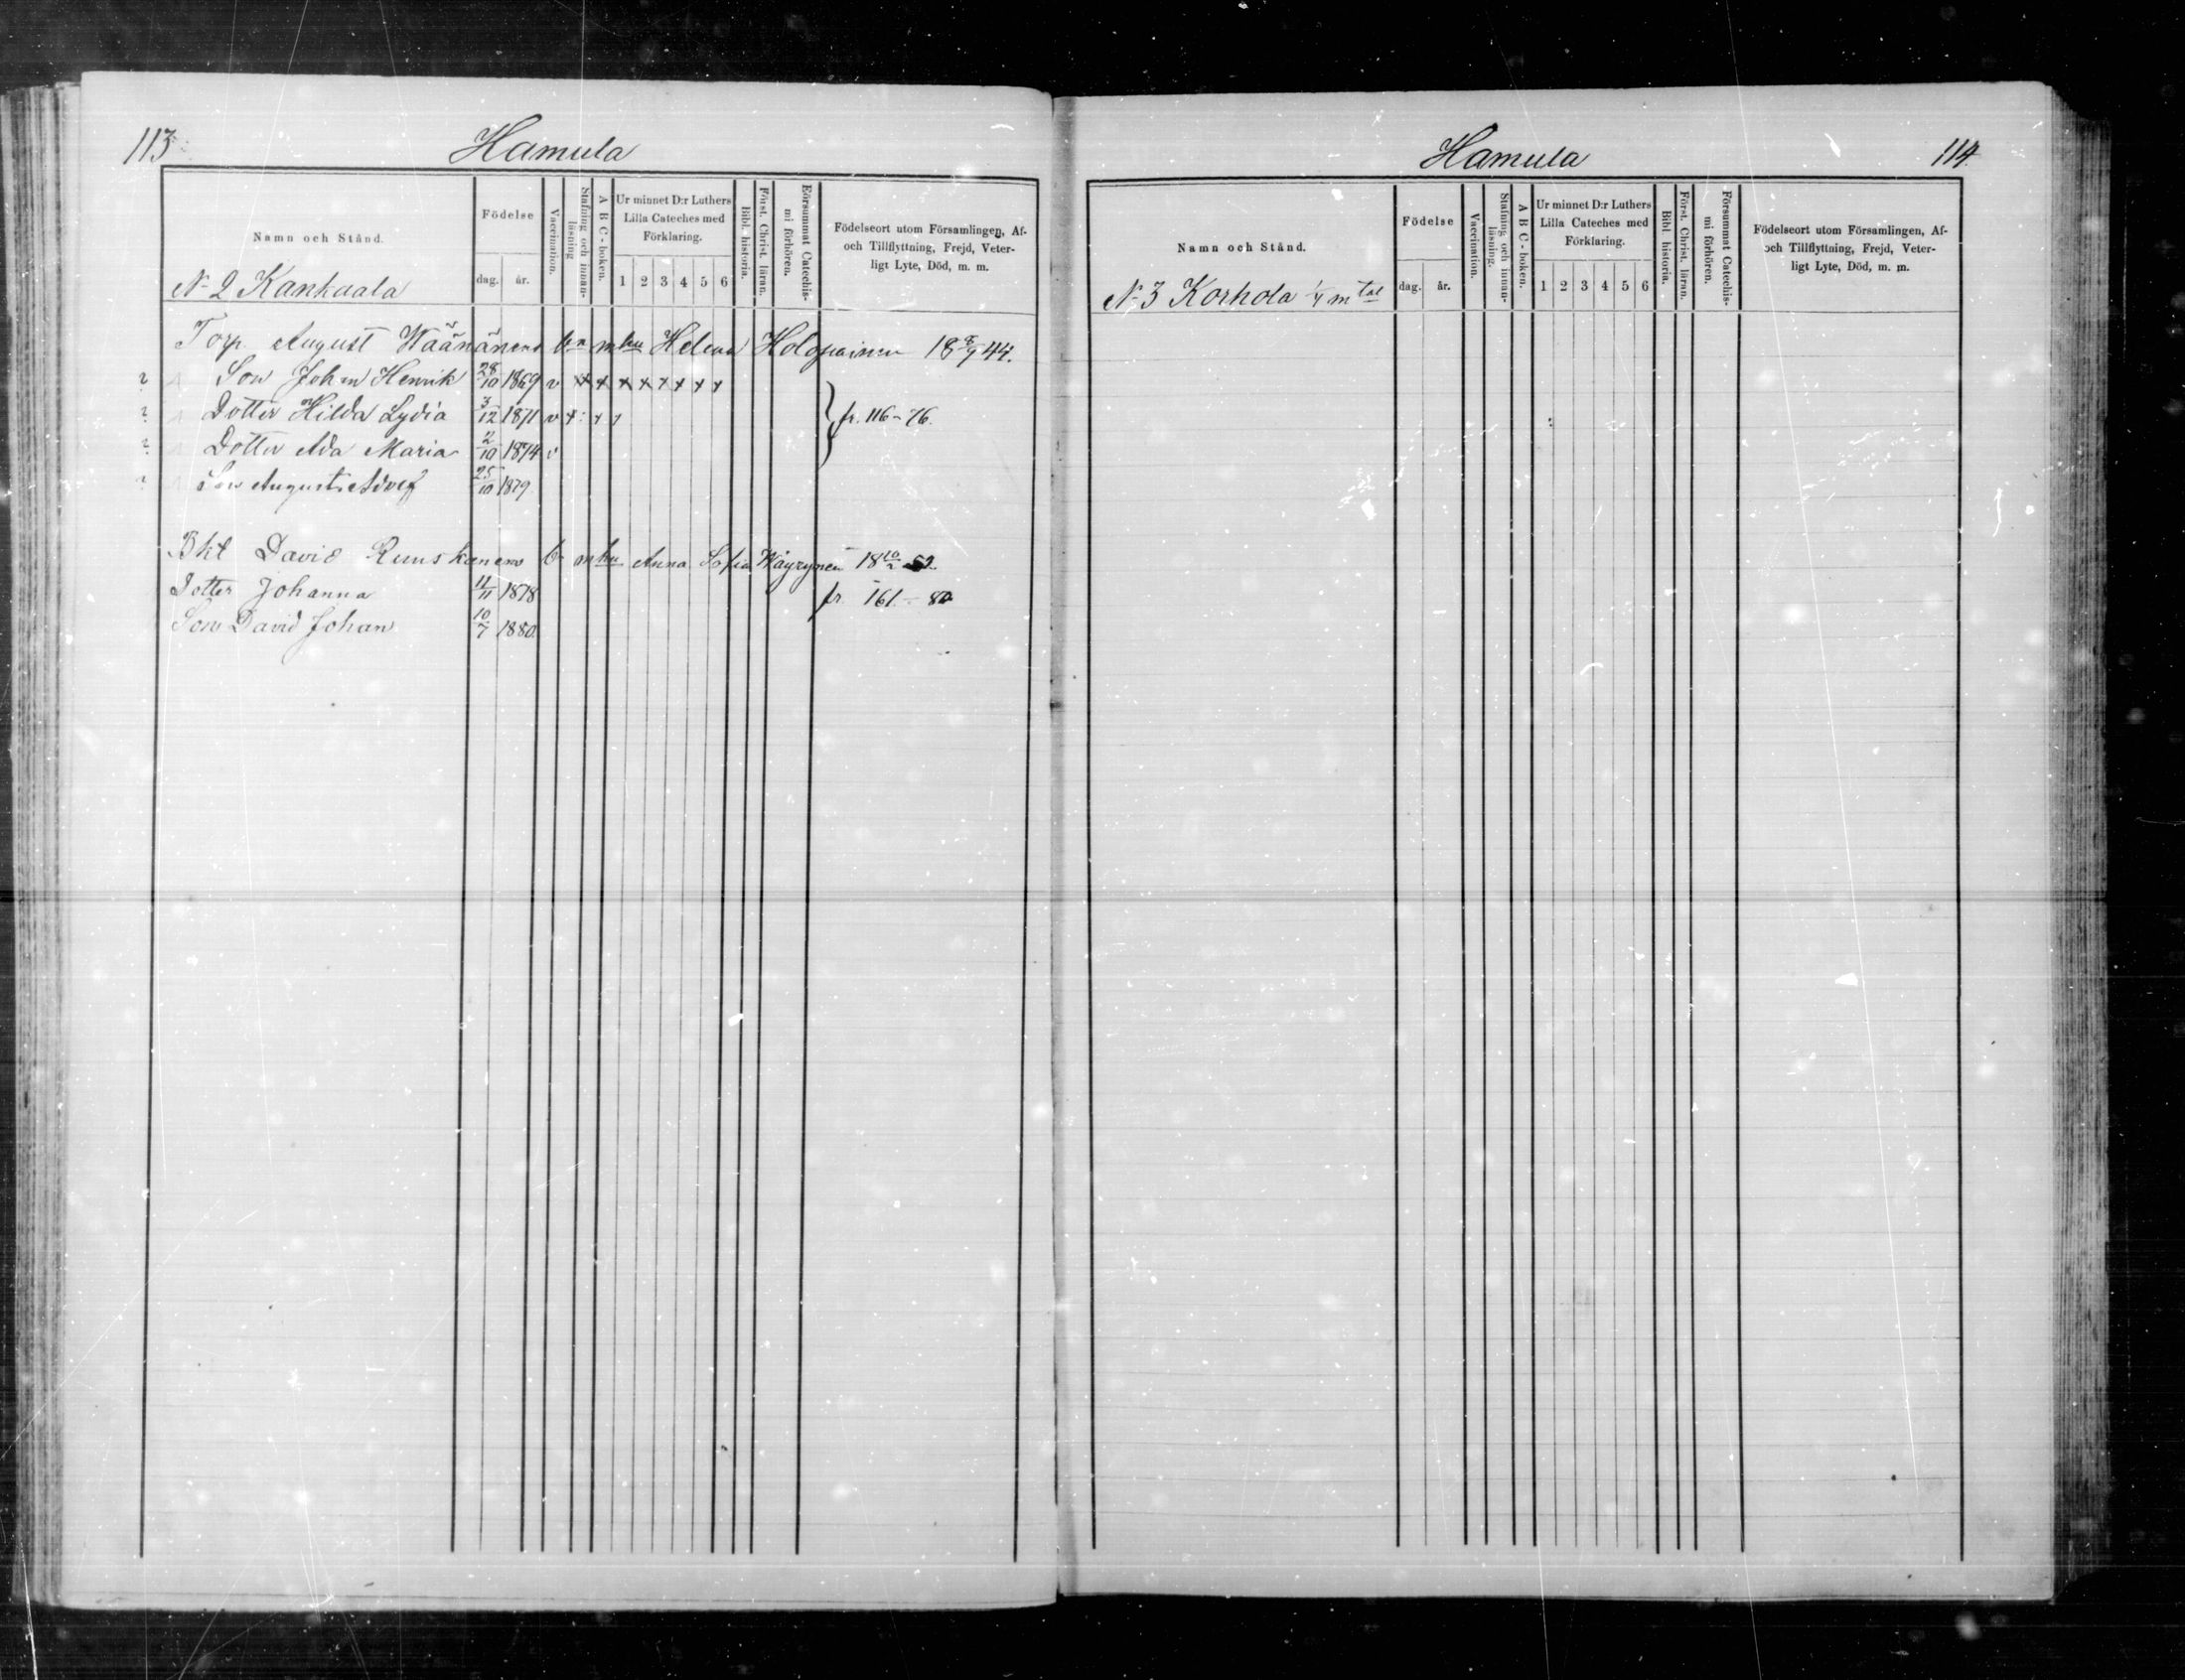 113 Hamula
Namn och Stånd.
Födelse
dag. år.
Vaccination.
Stafning och innan-läsning
A B C-boken.
Ur minnet D:r Luthers Lilla Cateches med Förklaring.
1 2 3 4 5 6
Bibl. historia.
Först. Christ. läran.
Försummat Catechis-mi förhören.
Födelseort utom Församlingen, Af- och Tillflyttning, Frejd, Veter-ligt Lyte, Död, m. m.
N 2 Kankaala
Torp. August Wäänänens bn m hu Helena Holopainen 18 8/9 44.
Son Johan Henrik 28/10 1869 v x x x x x x x x
Dotter Hilda Lydia 3/12 1871 v + + fr. 116-76.
Dotter Ada Maria 2/10 1874 v
Son August Adolf 25/10 1879
Bkt David Ruuskanens b m hu Anna Sofia Wäyrynen 18 10/2 52
Dotter Johanna 11/11 1878 fr. 161-80
Son David Johan 10/7 1880.
Hamula 114
Namn och Stånd.
Födelse
dag. år.
Vaccination.
Stafning och innan-läsning.
A B C-boken.
Ur minnet D:r Luthers Lilla Cateches med Förklaring.
1 2 3 4 5 6
Bibl historia.
Först. Christ. läran.
Försummat Catechis-mi förhören.
Födelseort utom Församlingen, Af- och Tillflyttning, Frejd, Veter-ligt Lyte, Död, m. m.
N 3 Korhola 1/4 mtal